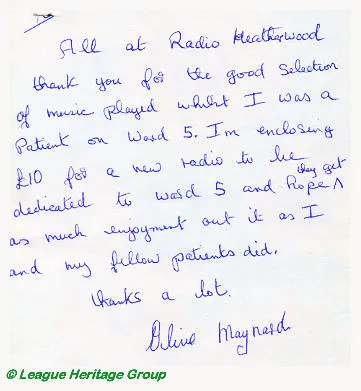 All at Radio Heatherwood
thank you for the good selection
of music played whilst I was a
Patient on Ward 5. I'm enclosing
£10 for a new radio to be
dedicated to ward 5 and hope ^ they get
as much enjoyment out it as I
and my fellow patients did.
thanks a lot.
Olive Maynard
© League Heritage Group